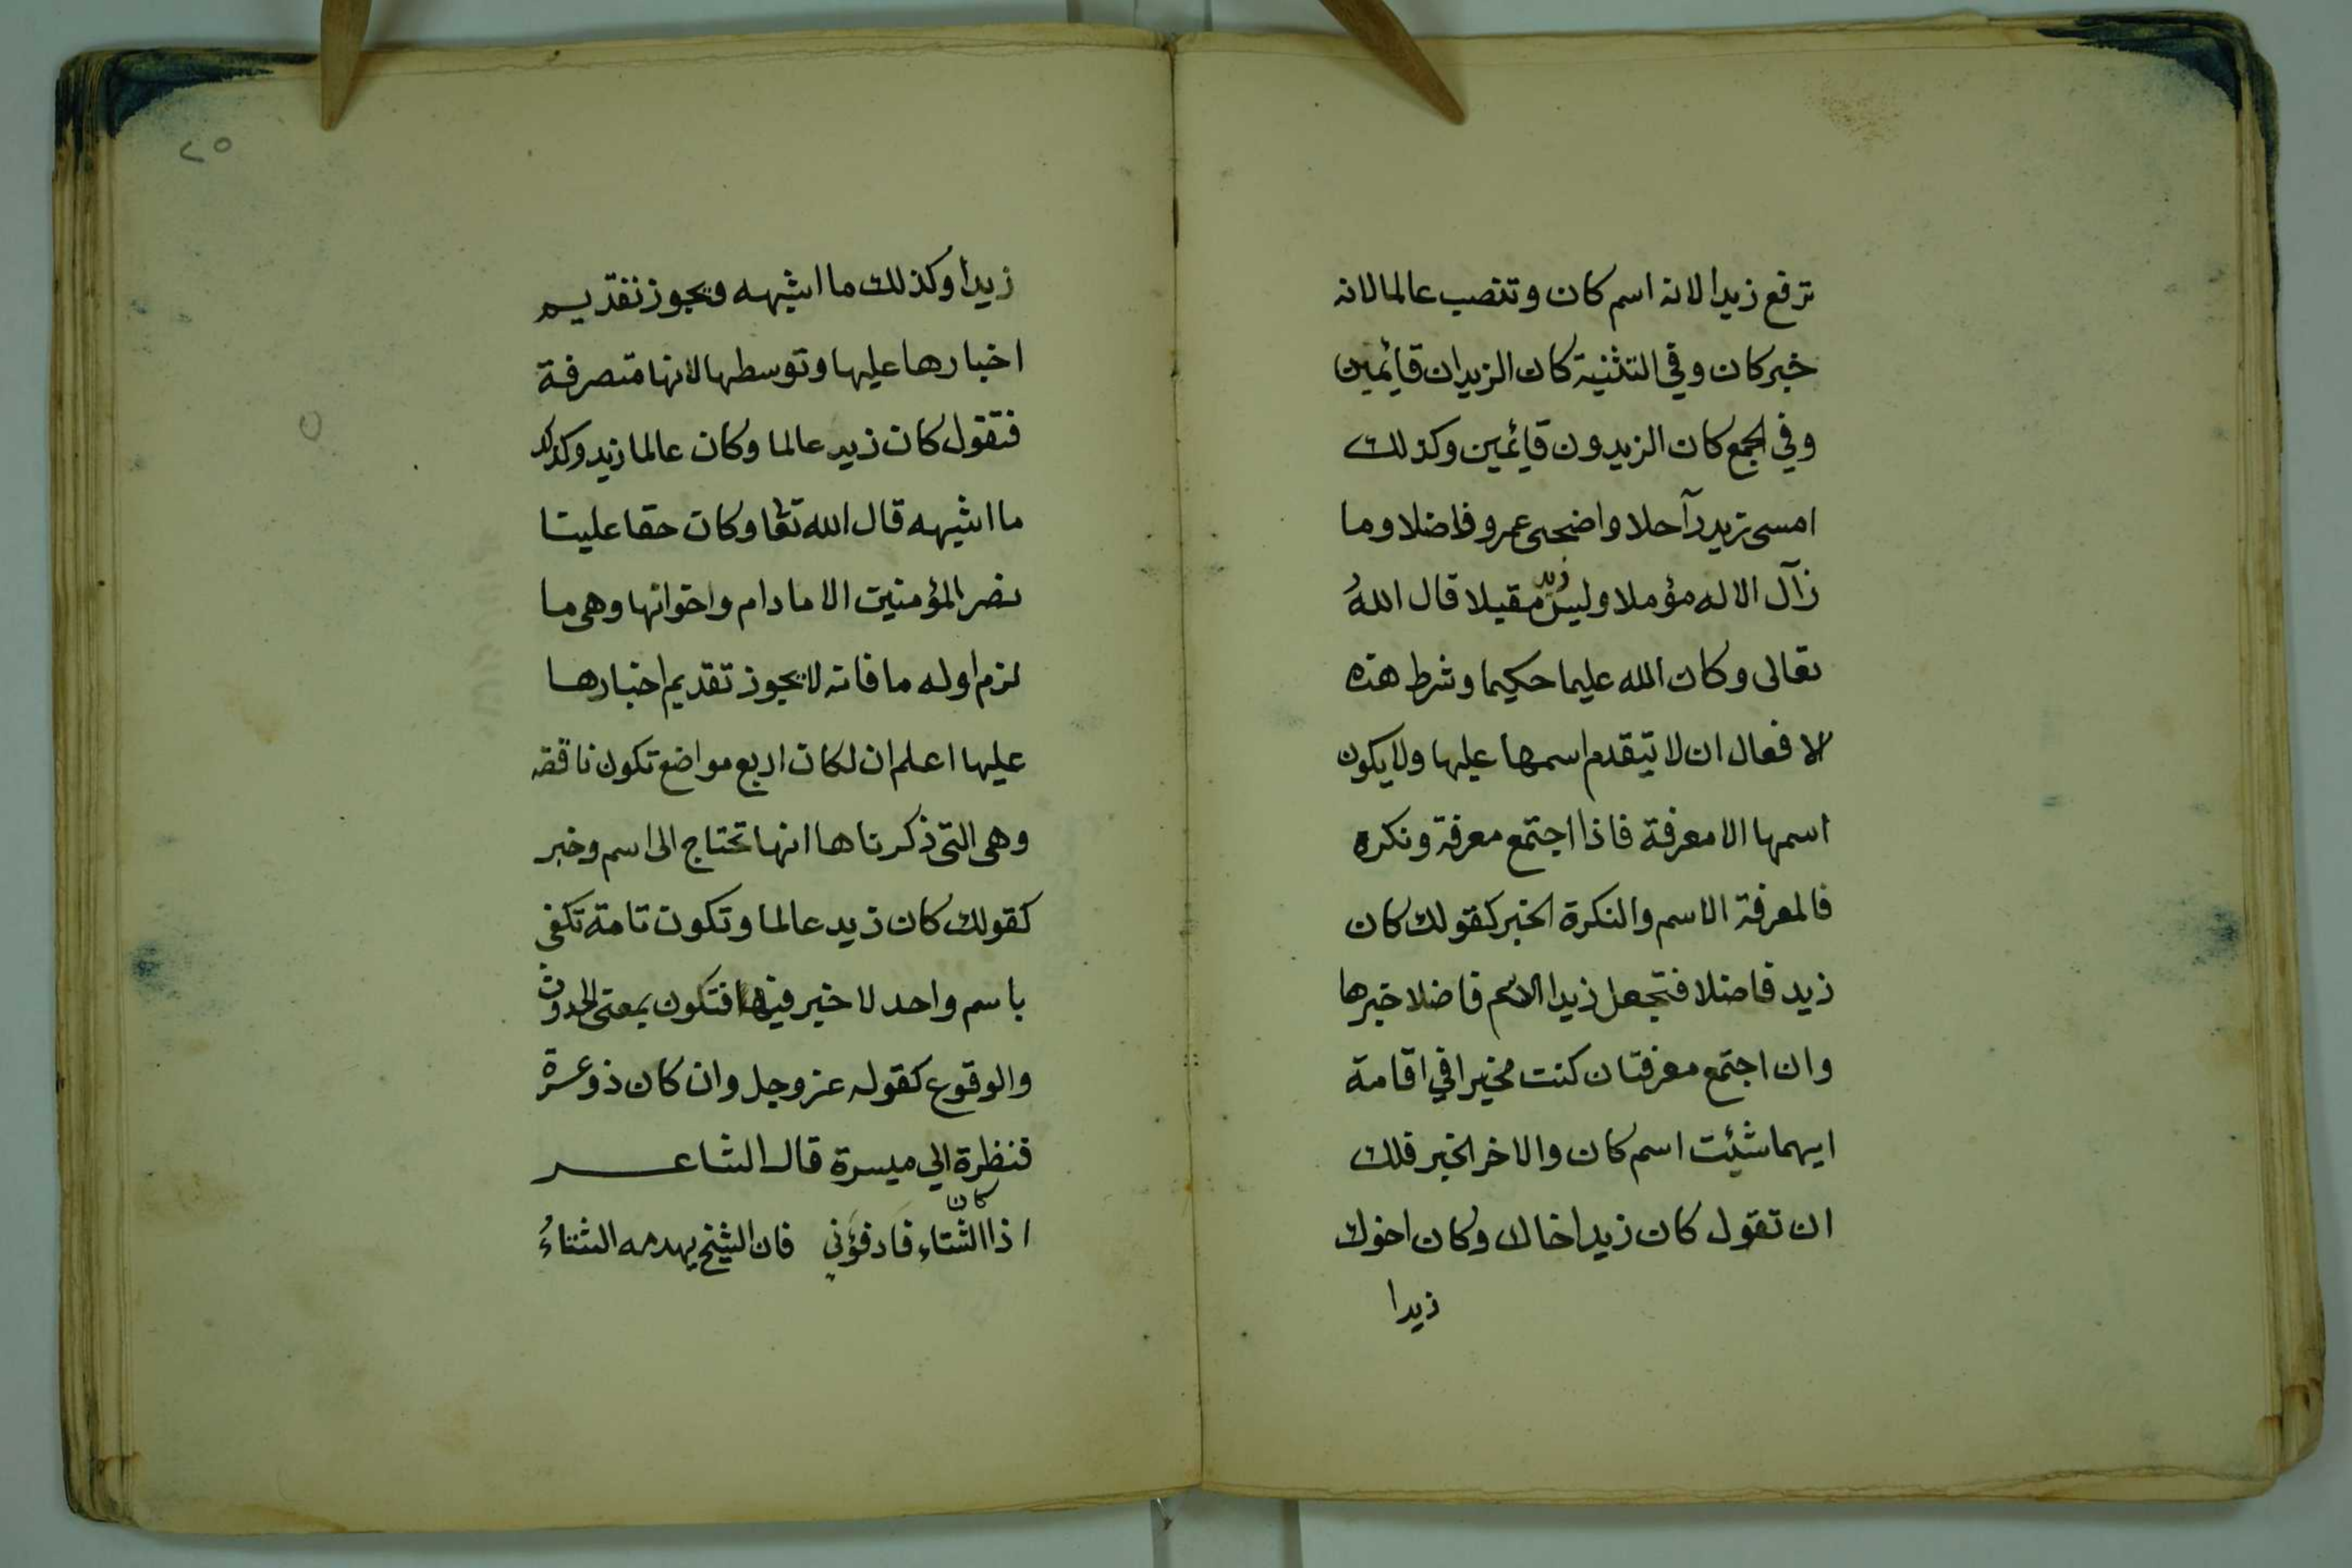 ترفع زيدا لانه اسم كان وتنصب عالما لانه
خبر كان وفي التثنية كان الزيدان قائمين
وفي الجمع كان الزيدون قائمين وكذلك
امسى زيد رآحلا واضحى عمرو فاضلا وما
زآل الاله مؤملا وليس زيد مقبلا قال اللهُ
تعالى وكان الله عليما حكيما وشرط هذه
الافعال ان لا يتقدم اسمها عليها ولا يكون
اسمها الا معرفة فاذا اجتمع معرفة ونكره
فالمعرفة الاسم والنكرة الخبر كقولك كان
زيد فاضلا فتجعل زيدا الاسم فاضلا خبرها
وان اجتمع معرفتان كنت مخيرا في اقامة
ايهما شئت اسم كان والاخر الخبر فلك
ان تقول كان زيد اخاك وكان اخوك
زيدا
٢٥
زيدا وكذلك ما اشبهه ويجوز تقديم
اخبارها عليها وتوسطها لانها متصرفة
فتقول كان زيد عالما وكان عالما زيد وكذلك
ما اشبهه قال الله تعا وكان حقا علينا
نصر المؤمنين الا ما دام واخوانها وهي ما
لزم اوله ما فانه لا يجوز تقديم اخبارها
عليها اعلم ان لكان اربع مواضع تكون ناقصه
وهي التي ذكرناها انها تحتاج الى اسم وخبر
كقولك كان زيد عالما وتكون تامة تكفى
باسم واحد لا خبر فيها فتكون بمعنى الحدوث
والوقوع كقوله عز وجل وان كان ذو عسرة
فنظرة الي ميسرة قال الشاعر
اذا كان الشتاء فادفؤني فان الشيخ يهدمه الشتاءُ